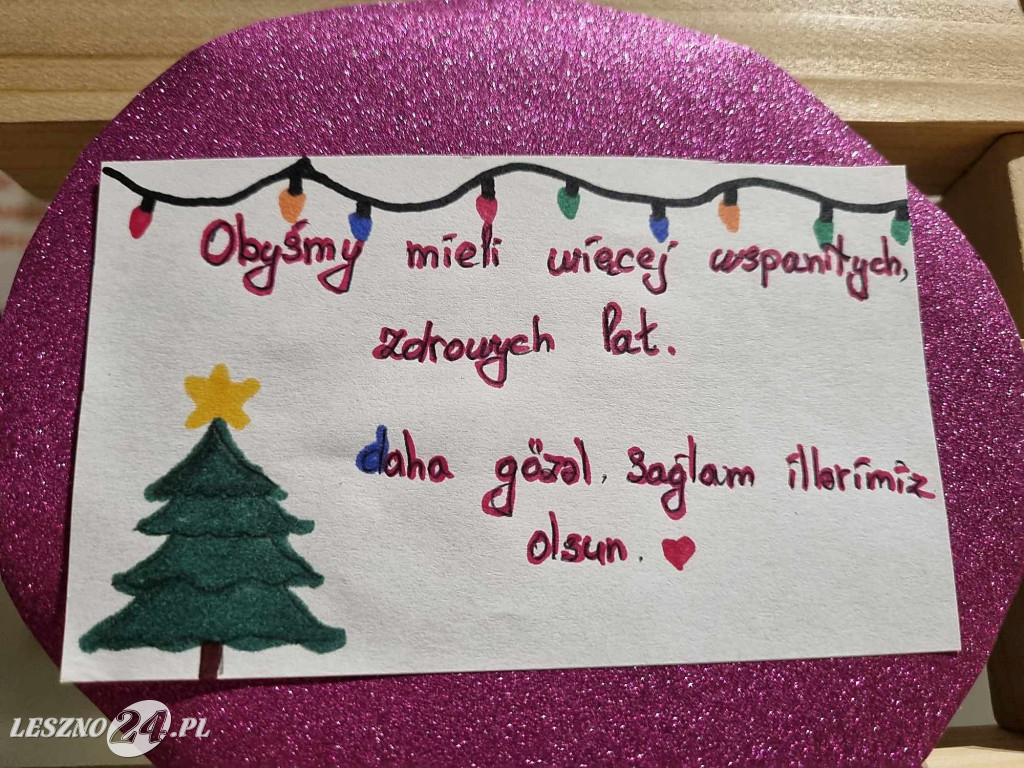 Obyśmy mieli więcej wspaniłych,
zdrowych lat.
daha gözəl, sağlam illərimiz
olsun.
LESZNO24.PL